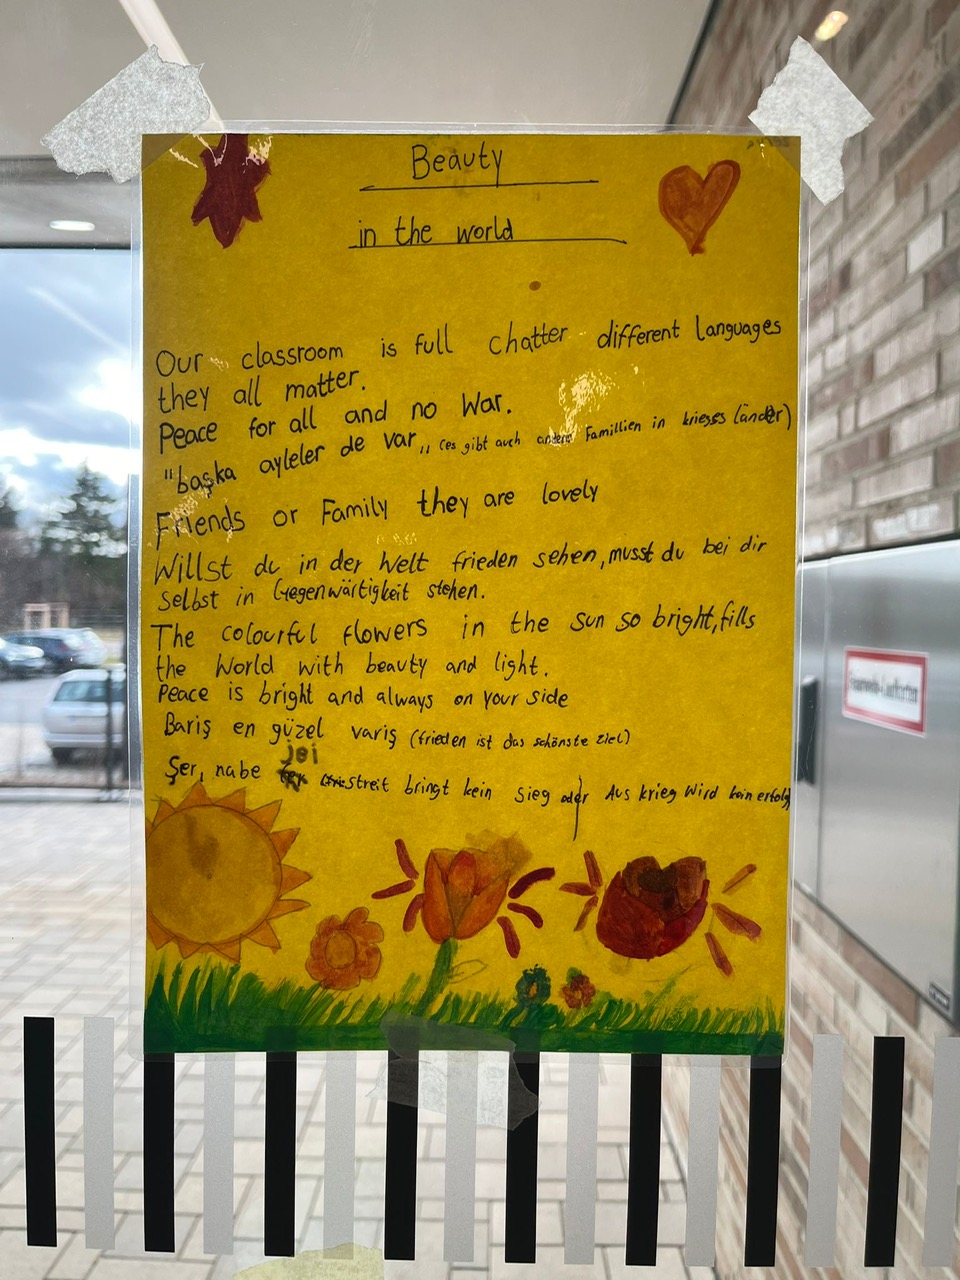 Beauty
in the world
Our classroom is full chatter different languages
they all matter.
Peace for all and no War.
"başka ayleler de var„ (es gibt auch andere Famillien in krieges länder)
Friends or Family they are lovely
Willst du in der Welt frieden sehen, musst du bei dir
selbst in Gegenwärtigkeit stehen.
The colourful flowers in the sun so bright, fills
the World with beauty and light.
Peace is bright and always on your side
Bariş en güzel variş (frieden ist das schönste ziel)
jei
Şer, nabe streit bringt kein sieg oder Aus krieg wird kein erfolg